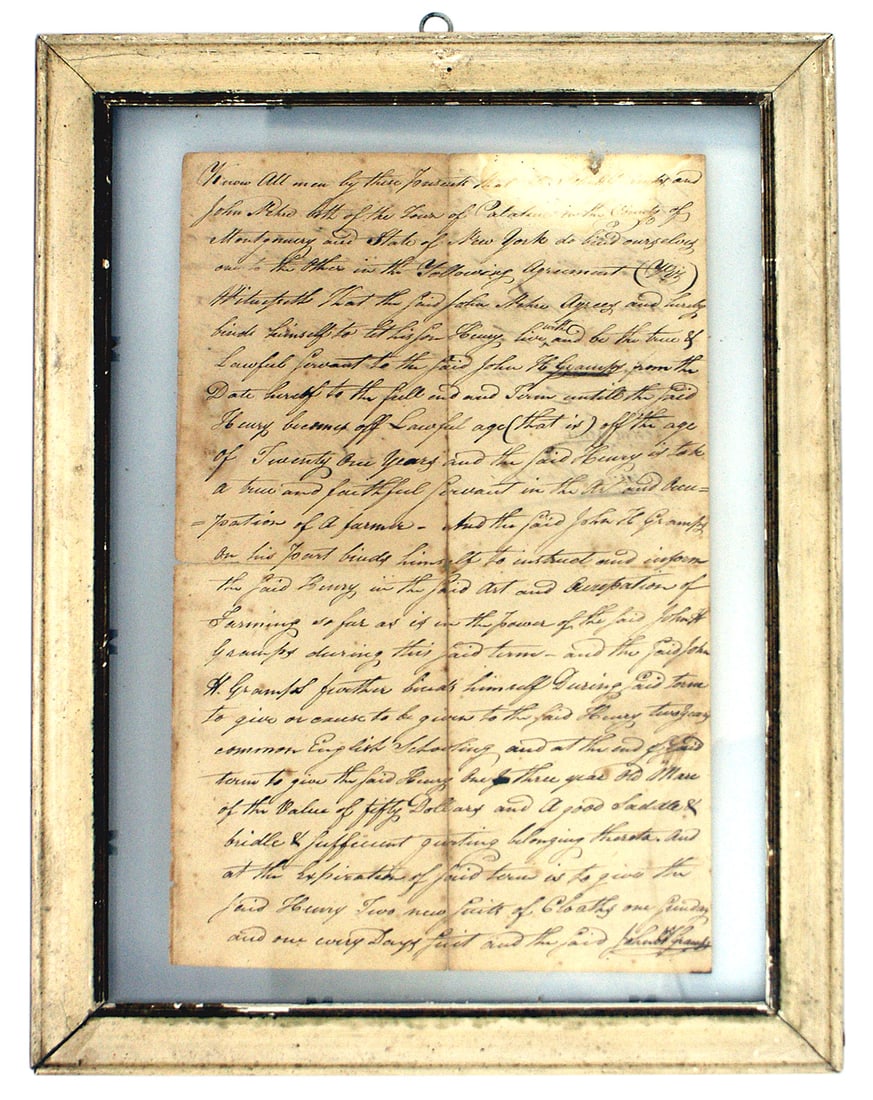 Know All men by these Presents that and
John Nehr both of the Town of Palatine in the County of
Montgomery and State of New York do bind ourselves
one to the Other in the Following Agreement (Viz)
Witnesseth That the said John Nehr Agrees and hereby
binds himself to let his Son Henry live with and be the true &
Lawful Servant to the Said John H Gramps from the
Date hereof to the full end and Term untill the said
Henry becomes off Lawful age (that is) off the age
Of Twenty One Years and the said Henry is to be
a true and faithful Servant in the Art and Occu=
=pation of A farmer - And the said John H Gramps
On his Part binds himself to instruct and inform
the said Henry in the said Art and Occupation of
Farming so far as is in the power of the said John H
Gramps during this said term - and the said John
H. Gramps further binds himself During said term
to give or cause to be given to the said Henry two years
common English Schooling and at the end of said
term to give the said Henry One three year Old Mare
of the Value of fifty Dollars and A good Saddle &
bridle & sufficient girting belonging thereto. And
at the Expiration of said term is to give the
said Henry Two new Suits of Cloaths one Sunday
and one every Days Suit and the said John H Gramps